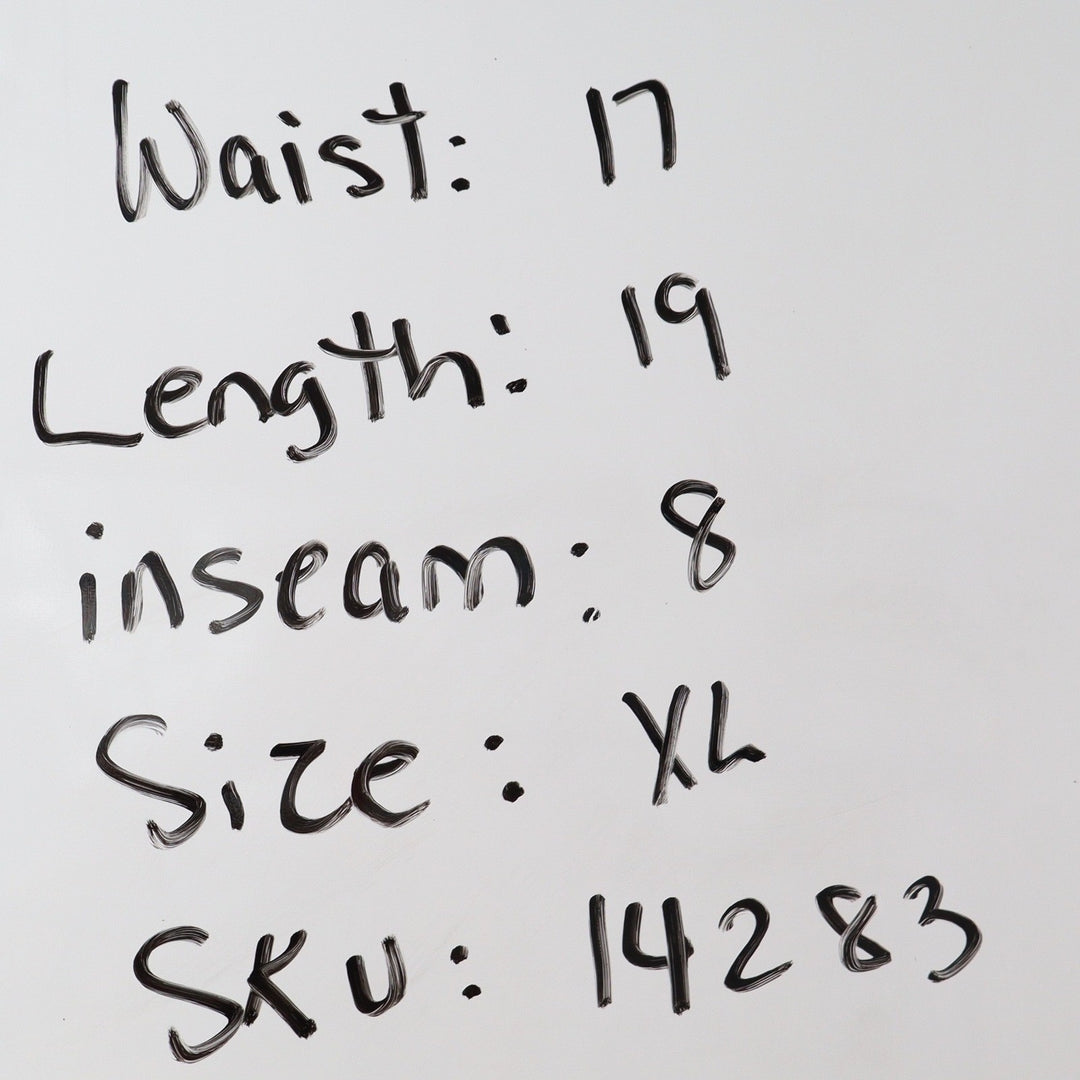 Waist: 17
Length: 19
inseam: 8
Size: XL
SKU: 14283